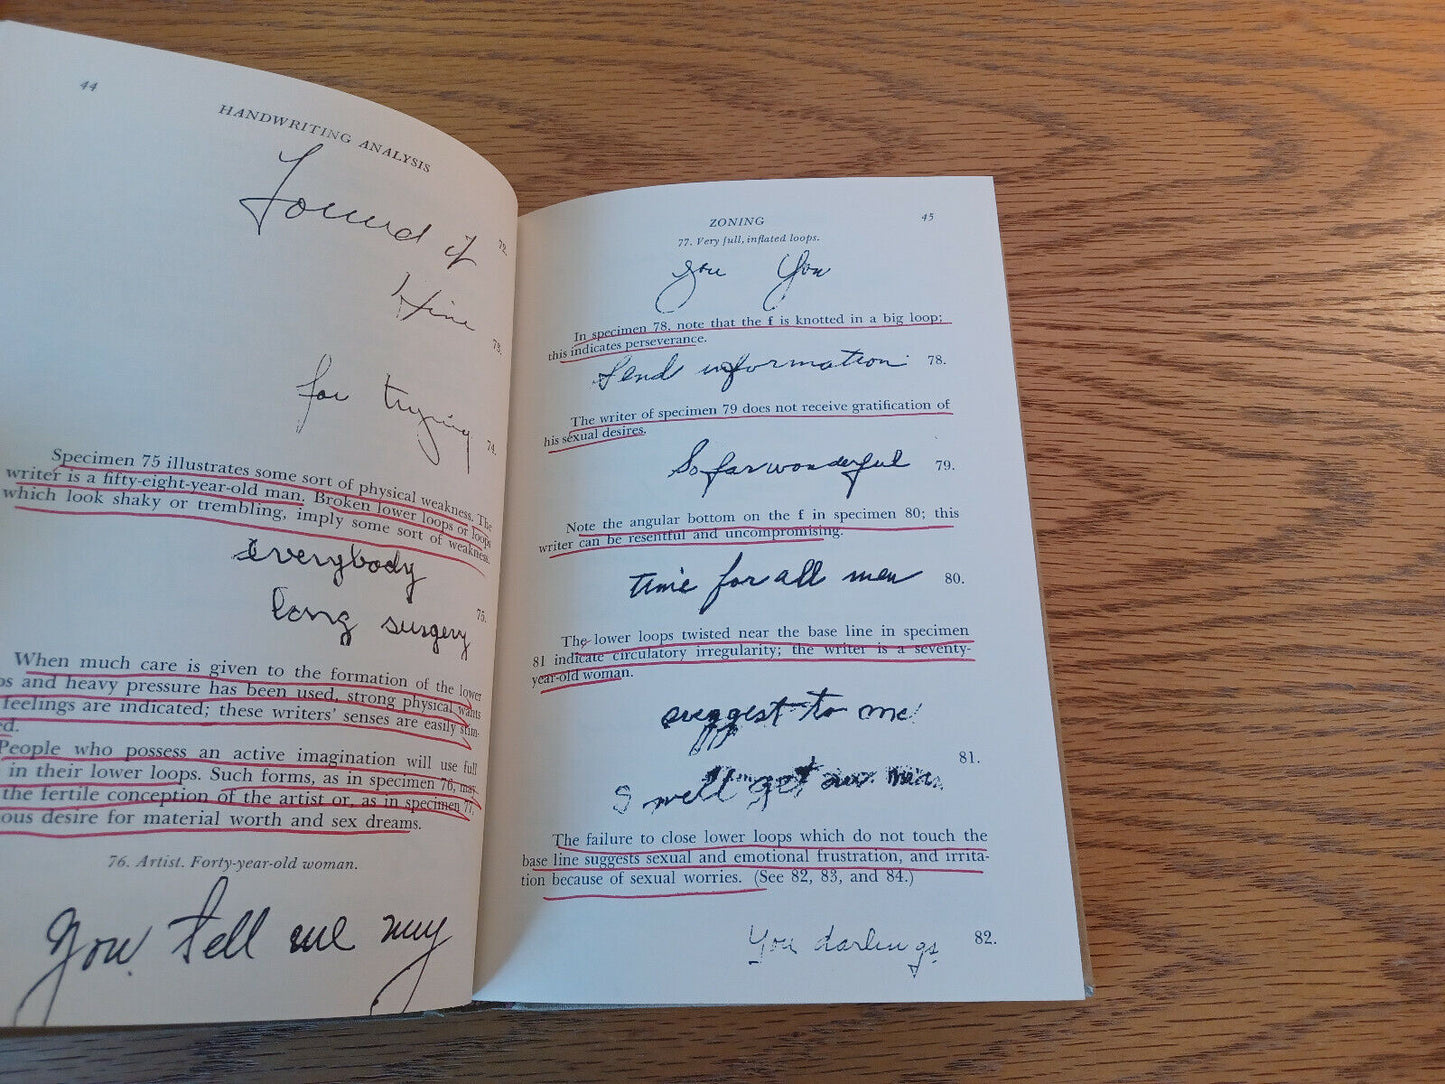 44
HANDWRITING ANALYSIS
of 72.
time 73.
for trying 74.
Specimen 75 illustrates some sort of physical weakness. The
writer is a fifty-eight-year-old man. Broken lower loops or loops
which look shaky or trembling, imply some sort of weakness.
everybody
long surgery 75.
When much care is given to the formation of the lower
ps and heavy pressure has been used, strong physical wants
feelings are indicated; these writers' senses are easily stim-
ed.
People who possess an active imagination will use full
in their lower loops. Such forms, as in specimen 76, may
the fertile conception of the artist or, as in specimen 77,
ous desire for material worth and sex dreams.
76. Artist. Forty-year-old woman.
you tell me my
ZONING 45
77. Very full, inflated loops.
you You
In specimen 78, note that the f is knotted in a big loop;
this indicates perseverance.
Send information 78.
The writer of specimen 79 does not receive gratification of
his sexual desires.
So far wonderful 79.
Note the angular bottom on the f in specimen 80; this
writer can be resentful and uncompromising.
time for all men 80.
The lower loops twisted near the base line in specimen
81 indicate circulatory irregularity; the writer is a seventy-
year-old woman.
suggest to me
81.
I well get
The failure to close lower loops which do not touch the
base line suggests sexual and emotional frustration, and irrita-
tion because of sexual worries. (See 82, 83, and 84.)
You darlings 82.